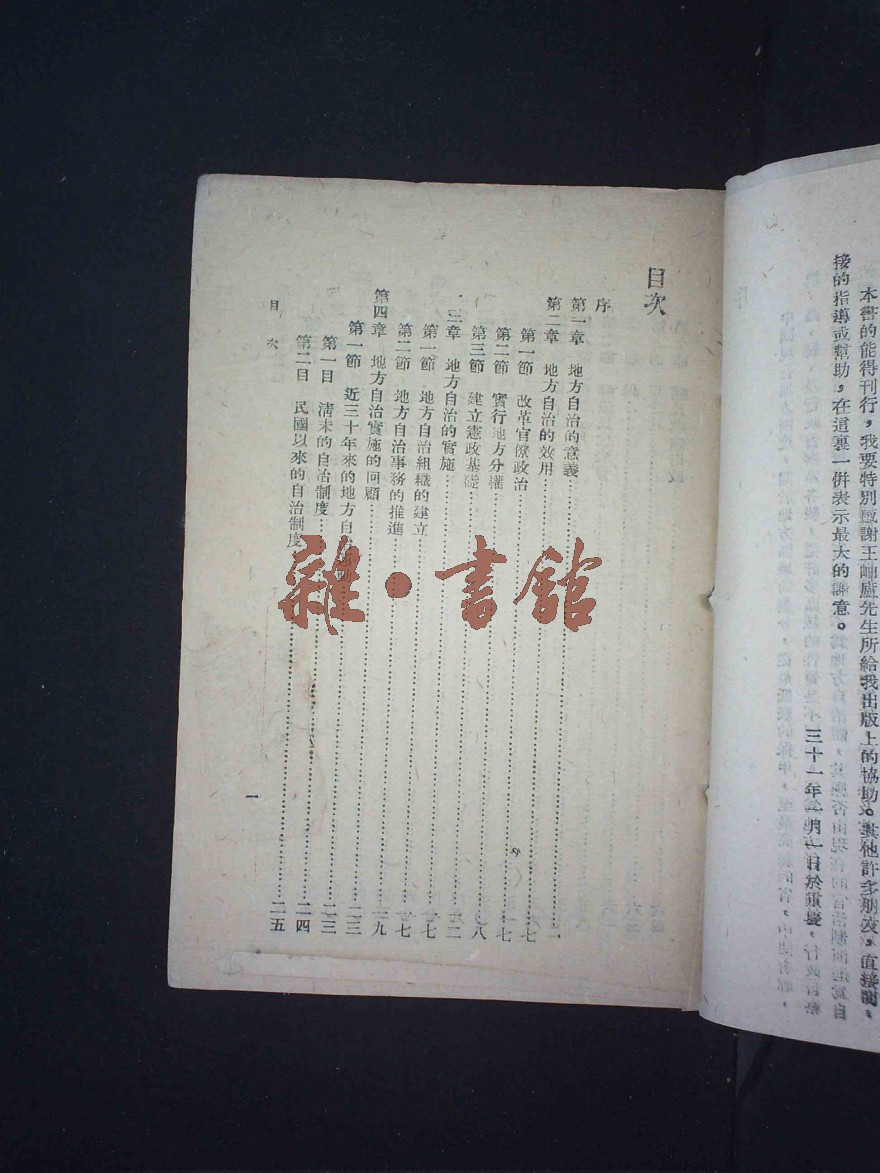 本書的能得刊行，我要特別感謝王岫廬先生所給我出版上的協助。其他許多朋友，直接間
接的指導或幫助，在這裏一併表示最大的謝意。
三十一年一月一日於重慶
目次
序
第一章 地方自治的意義……二
第二章 地方自治的效用……七
第一節 改革官僚政治……七
第二節 實行地方分權……八
第三節 建立憲政基礎……一二
三章 地方自治的實施……一七
第一節 地方自治組織的建立……一七
第二節 地方自治事務的推進……一九
第四章 地方自治實施的回顧……二三
第一節 近三十年來的地方自……二三
第一目 清末的自治制度……二四
第二目 民國以來的自治制度……二五
目次
一
雜·書館